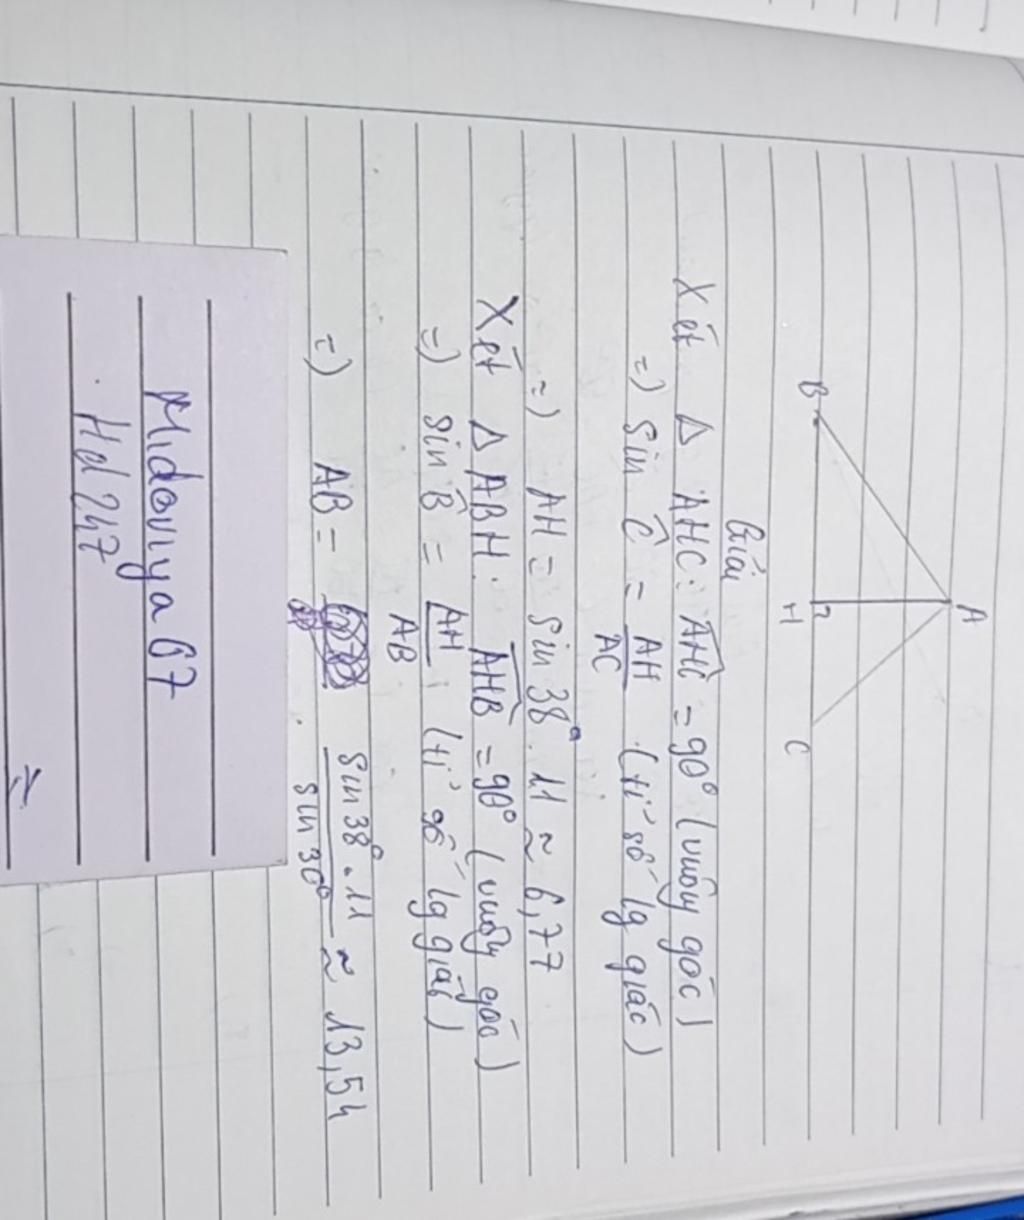 A
B
H
C
Giải
Xét Δ AHC: AHC = 90° (vuông góc)
=) Sin Ĉ = AH/AC (tỉ số lg giác)
=) AH = Sin 38°. 11 ≈ 6,77
Xét Δ ABH: AHB = 90° (vuông góc)
=) Sin B̂ = AH/AB (tỉ số lg giác)
=) AB = Sin 38°.11/Sin 30° ≈ 13,54
Midoriya67
Hd247